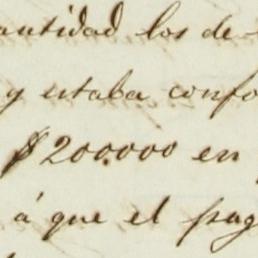 antidad los de
y estaba confo
$200.000 en
á que el pag